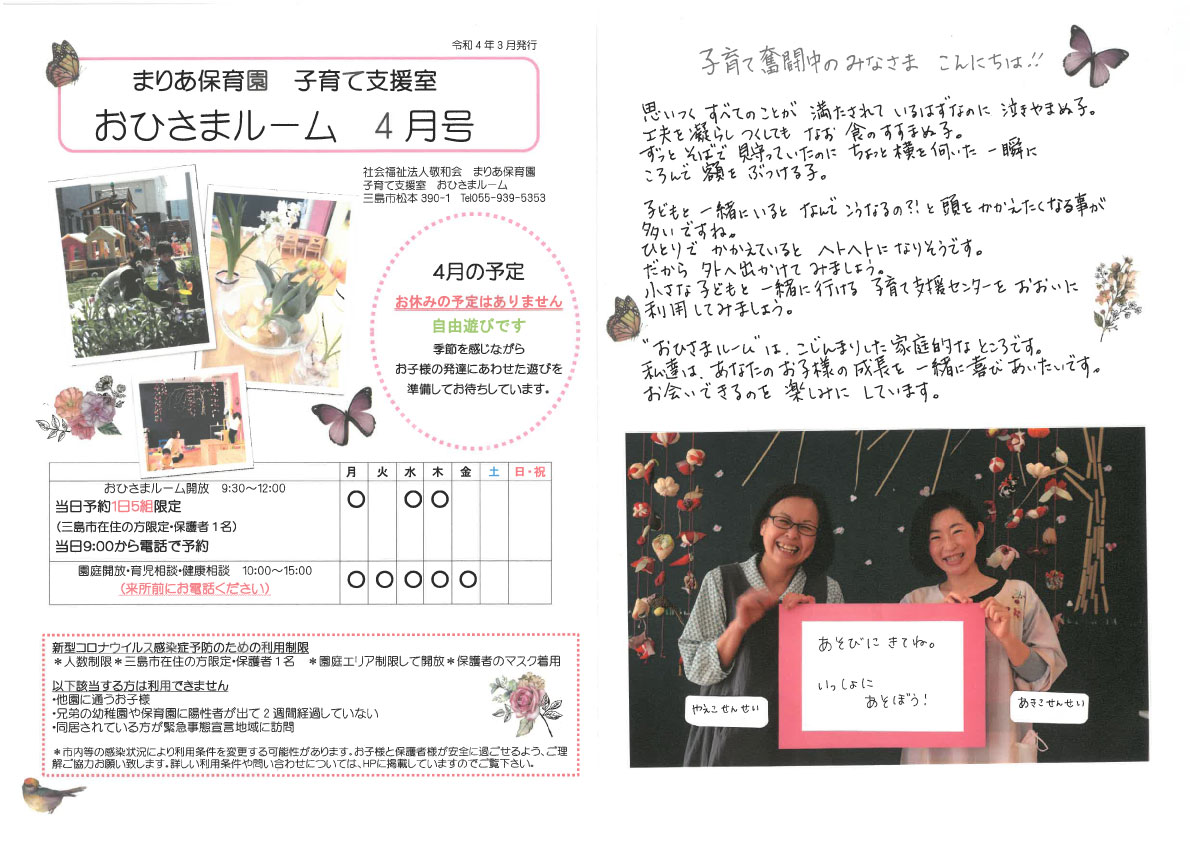 令和4年3月発行
まりあ保育園　子育て支援室
おひさまルーム　4月号
社会福祉法人敬和会　まりあ保育園
子育て支援室　おひさまルーム
三島市松本390-1　Tel055-939-5353
4月の予定
お休みの予定はありません
自由遊びです
季節を感じながら
お子様の発達にあわせた遊びを
準備してお待ちしています。
月 火 水 木 金 土 日・祝
おひさまルーム開放　9:30～12:00
当日予約1日5組限定
（三島市在住の方限定・保護者1名）
当日9:00から電話で予約
○ ○ ○
園庭開放・育児相談・健康相談　10:00～15:00
（来所前にお電話ください）
○ ○ ○ ○ ○
新型コロナウイルス感染症予防のための利用制限
＊人数制限＊三島市在住の方限定・保護者1名　＊園庭エリア制限して開放＊保護者のマスク着用
以下該当する方は利用できません
・他園に通うお子様
・兄弟の幼稚園や保育園に陽性者が出て2週間経過していない
・同居されている方が緊急事態宣言地域に訪問
＊市内等の感染状況により利用条件を変更する可能性があります。お子様と保護者様が安全に過ごせるよう、ご理
解ご協力お願い致します。詳しい利用条件や問い合わせについては、HPに掲載していますのでご覧下さい。
子育て奮闘中のみなさま　こんにちは!!
思いつく すべてのことが 満たされて いるはずなのに 泣きやまぬ子。
工夫を凝らし つくしても なお 食のすすまぬ子。
ずっと そばで 見守っていたのに ちょっと横を向いた 一瞬に
ころんで 額を ぶつける子。
子どもと 一緒にいると なんで こうなるの?!と 頭を かかえたくなる事が
多いですね。
ひとりで かかえていると ヘトヘトに なりそうです。
だから 外へ出かけて みましょう。
小さな子どもと 一緒に行ける 子育て支援センターを おおいに
利用してみましょう。
"おひさまルーム"は、こじんまりした家庭的なところです。
私達は、あなたのお子様の成長を 一緒に喜びあいたいです。
お会いできるのを 楽しみに しています。
あそびに きてね。
いっしょに
あそぼう!
やえこせんせい
あきこせんせい